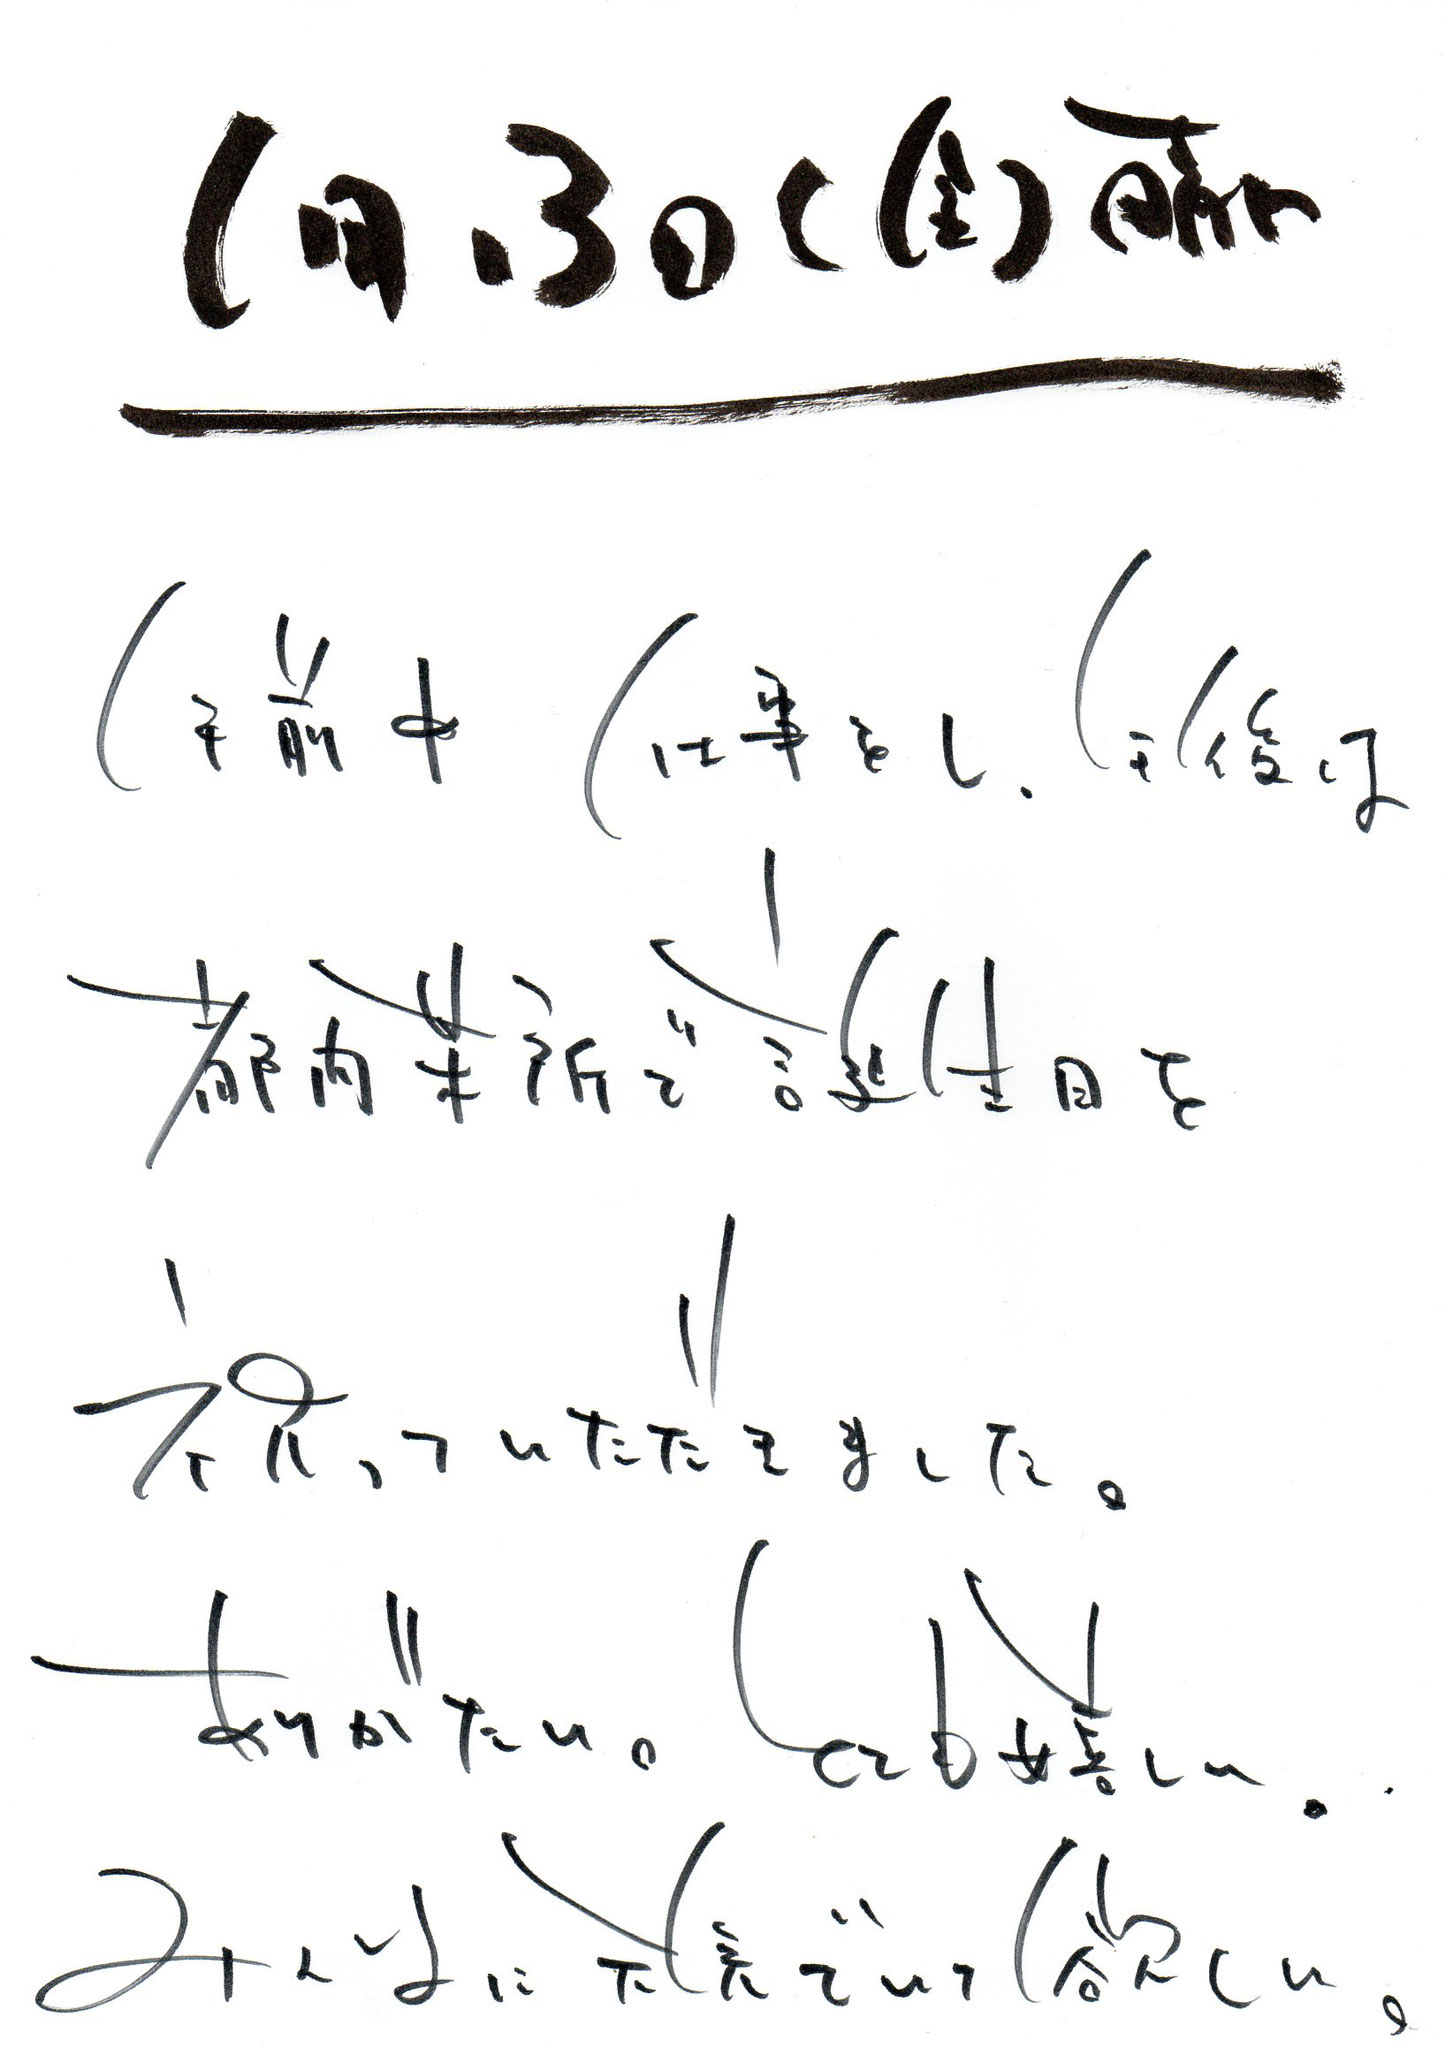 1月.3日(金)晴れ
午前中仕事をし、午後は
都内某所で誕生日を
祝っていただきました。
ありがたい。とても嬉しい。
みんなに元気でいて欲しい。